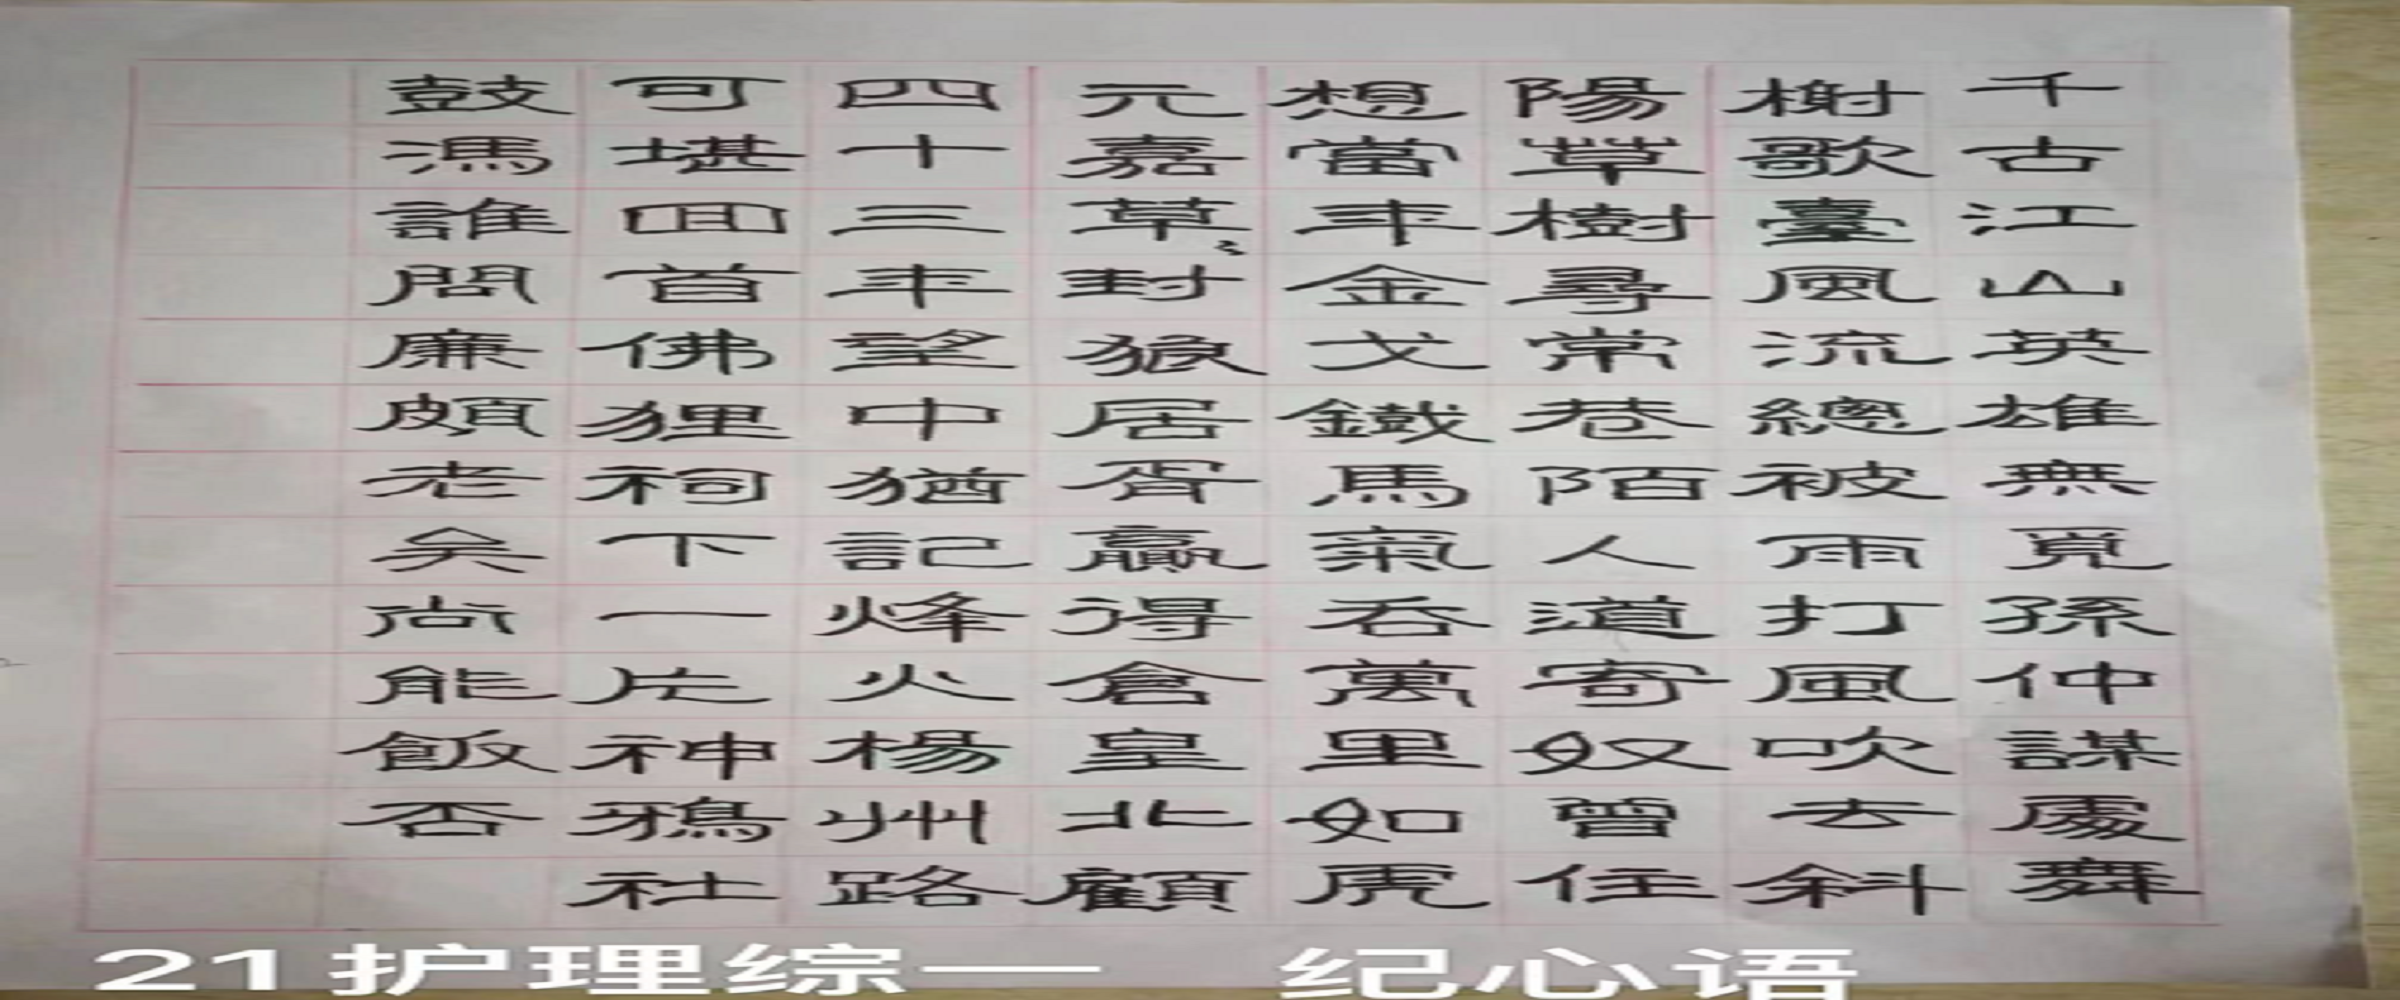 千古江山英雄無覓孫仲謀處舞
榭歌臺風流總被雨打風吹去斜
陽草樹尋常巷陌人道寄奴曾住
想當年金戈鐵馬氣吞萬里如虎
元嘉草〻封狼居胥贏得倉皇北顧
四十三年望中猶記烽火楊州路
可堪回首佛狸祠下一片神鴉社
鼓馮誰問廉頗老矣尚能飯否
21护理综一 纪心语